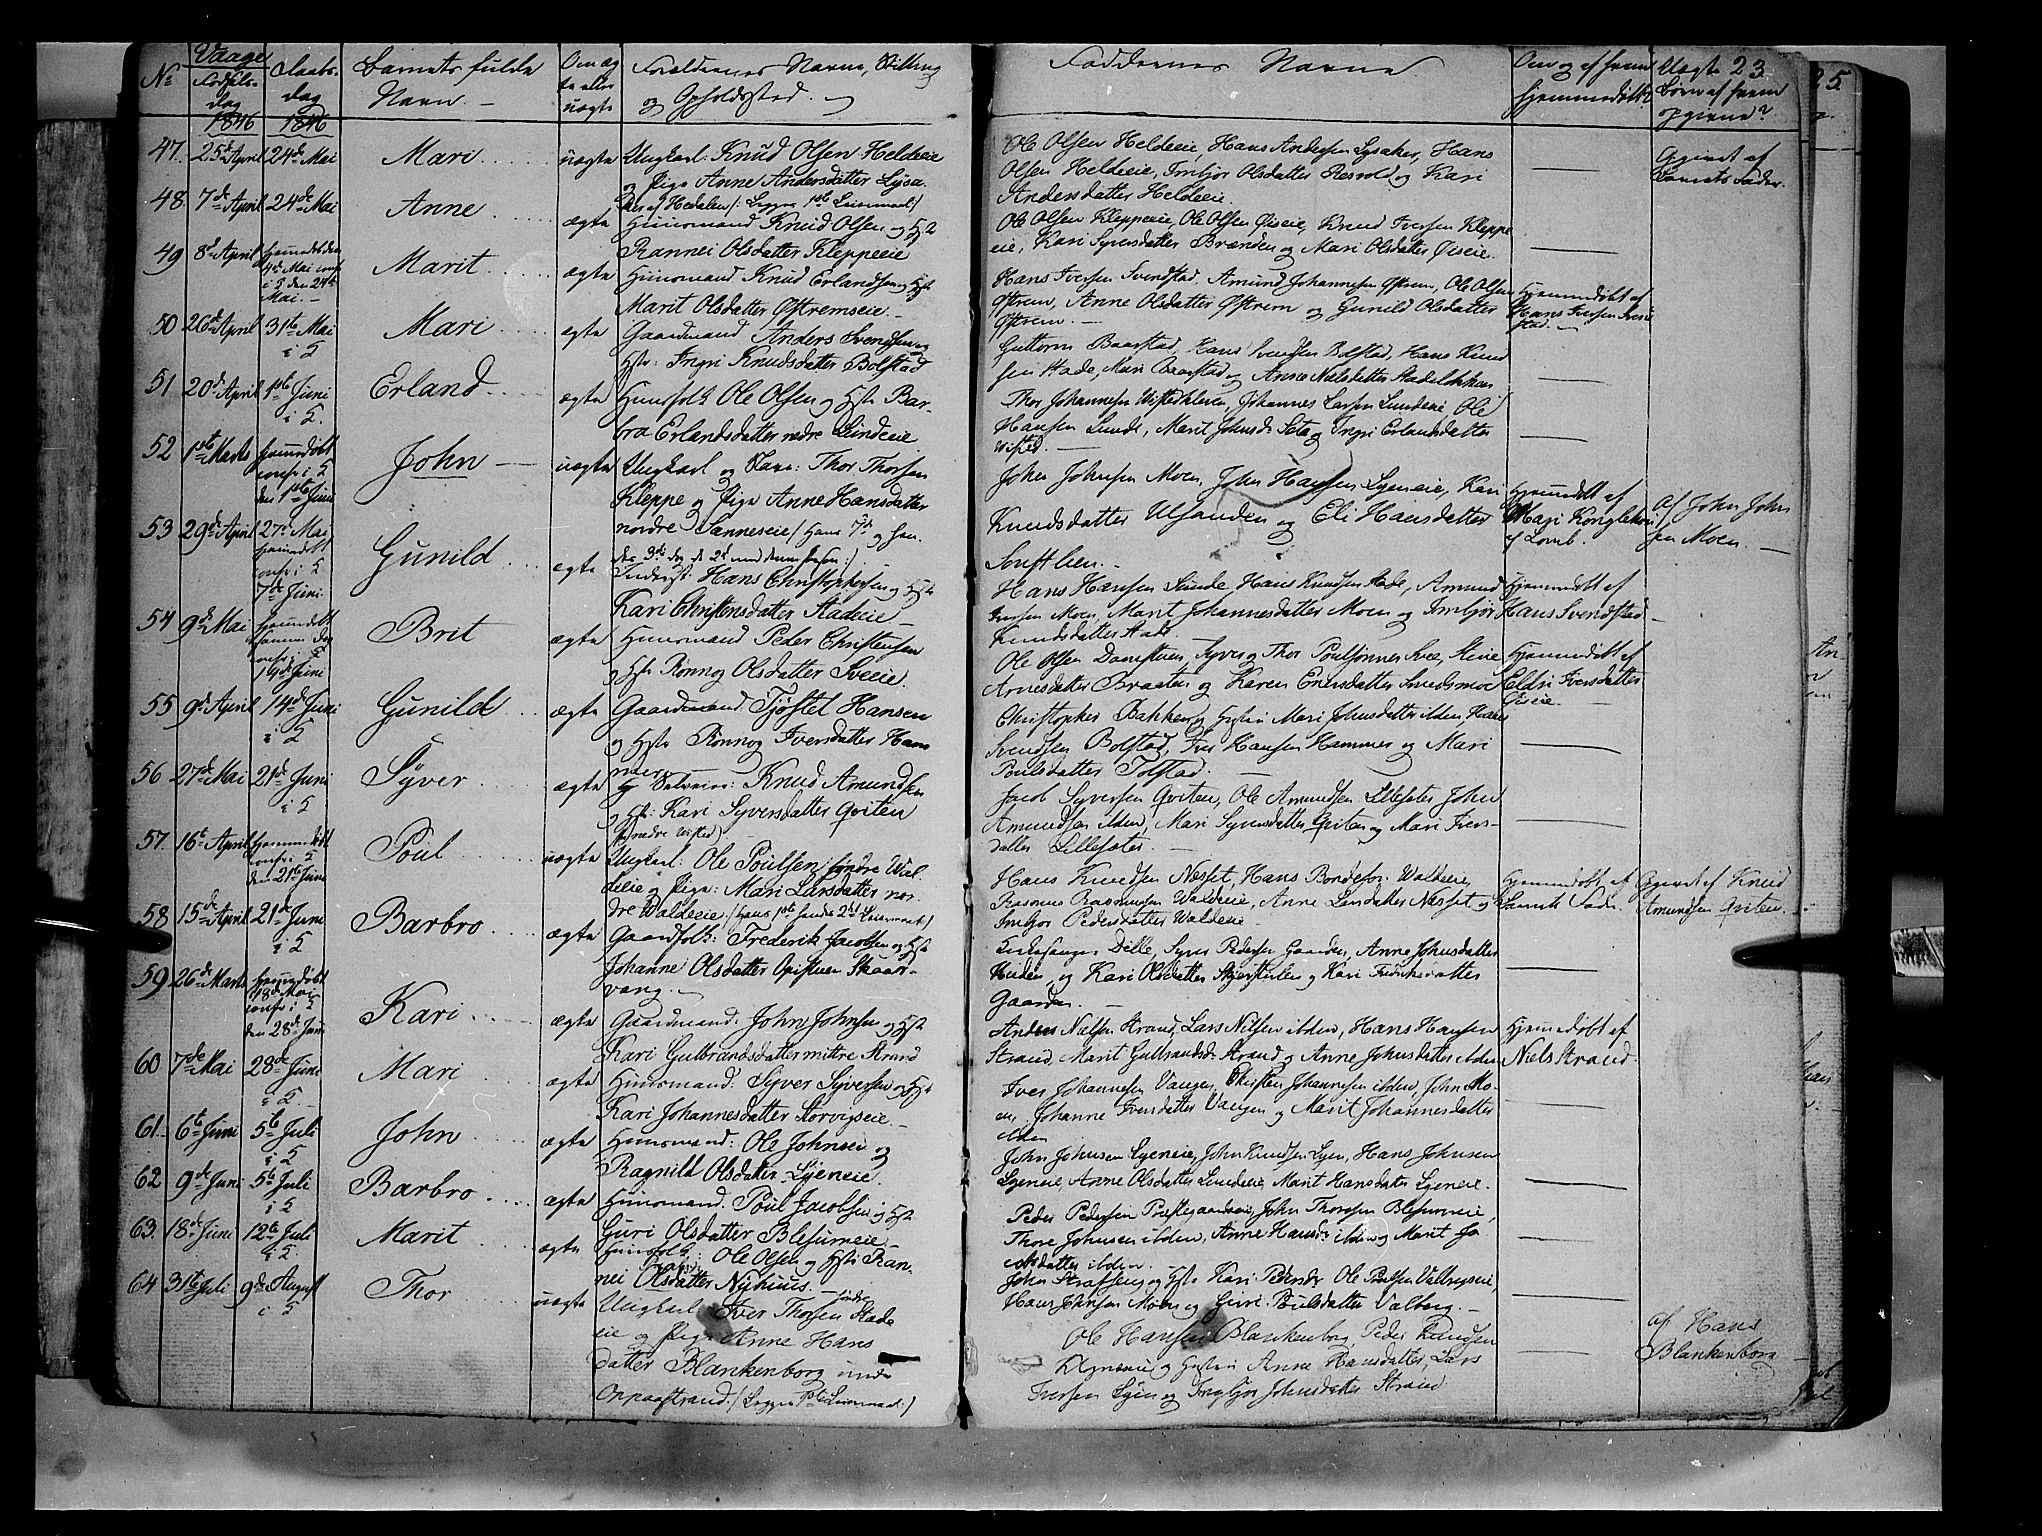 Vaage
No Fødsels-dag 1846 Daabs-dag 1846 Barnets fulde Navn. Om ægte eller uægte Forældrenes Navne, Stilling og Opholdssted. Faddernes Navne. Om og af hvem hjemmedøbt Uægte Børn af hvem opgivne? 23.
47. 25de April 24de Mai Mari uægte Ungkarl: Knud Olsen Heldeeie
og Pige Anne Andersdatter Lysa-
ker af Hedalen /: Begges 1ste Leiermaal:/
Ole Olsen Heldeeie, Hans Andersen Lysaker, Hans
Olsen Heldeeie, Imbjør Olsdatter og Kari
Andersdatter Heldeeie.
Opgivet af
Barnets Fader.
48. 7de April 24de Mai Anne ægte Huusmand Knud Olsen og Hst
Rannei Olsdatter Kleppeeie
Ole Olsen Kleppeeie, Ole Olsen Øiseie, Knud Iversen Kleppe
eie, Kari Syversdatter Brænden og Mari Olsdatter Øiseie.
49 8de April hjemmedøbt den
4de Mai conf.
i K den 24de
Mai. Marit ægte Huusmand Knud Erlandsen og Hst
Marit Olsdatter Øfstremseie
Hans Iversen Svendstad, Amund Johannesen Øfstrem, Ole Olsen
Øfstrem, Anne Olsdatter Øfstrem og Gunild Olsdatter
Øfstrem.
Hjemmedøbt af
Hans Iversen
50 26de April 31te Mai Mari ægte Gaardmand Anders Svendsen og
Hst: Ingri Knudsdatter Bolstad
Guttorm Baarstad, Hans Svendsen Bolstad, Hans Knud
sen Stade, Mari Baarstad og Anne Nielsdatter Stadeløkken
51 20de April 1ste Juni Erland ægte Huusfolk Ole Olsen og Hst Bar-
bro Erlandsdatter nedre Lundeeie
Thor Johannesen Wistekleven, Johannes Larsen Lundeeie, Ole
Hansen Lunde, Marit Johnsdr Sete og Ingri Erlandsdatter
Wisted
52 1ste Marts hjemmedøbt
conf. i K
den 1ste Juni John uægte Ungkarl og Slave: Thor Thorsen
Kleppe og Pige Anne Hansdatter
nordre Sanneseie
John Johnsen Moen, John Hansen Lyeneie, Kari
Knudsdatter Ulsanden og Eli Hansdatter
Hjemmedøbt af
Mari
af Lomb.
af John John
sen Moen.
53 29de April 27de Mai
hjemmedøbt
conf. i K
7de Juni Gunild ægte Inderst: Hans Christophersen og Hst
Kari Christensdatter Stadeeie
Hans Hansen Lunde, Hans Knudsen Stade, Amund
Iversen Moen, Marit Johannesdatter Moen og Imbjør
Knudsdatter Stade
Hjemmedøbt af
Hans Svendstad
54 9de Mai hjemmedøbt
samme Dag
conf. i K
14de Juni Brit ægte Huusmand Peder Christensen
og Hst Rønnog Olsdatter Sveeie
Ole Olsen Damstuen, Syver og Thor Poulsønner Svee,
Arnesdatter Braaten og Karen Enersdatter Svedsmoe
Hjemmedøbt af
Eldri Iversdatter
Øiseie.
55 9de April 14de Juni Gunild ægte Gaardmand Tjøstel Hansen
og Hst Rønnog Iversdatter Ham
mer
Christopher Bakken og Hustru Mari Johnsdatter ibden, Hans
Svendsen Bolstad, Iver Hansen Hammer og Mari
Poulsdatter Tolstad.
56 27de Mai 21de Juni Syver ægte Selveier: Knud Amundsen
og Hst: Kari Syversdatter Qviten
(nedre Wisted)
Jacob Syversen Qviten, Ole Amundsen Lillesæter, John
Amundsen ibden, Mari Syversdatter Qviten og Mari Ivers-
datter Lillesæter.
57. 16de April hjemmedøbt
conf. i K
den 21de Juni Poul uægte Ungkarl: Ole Poulsen søndre Wal-
deeie og Pige: Mari Larsdatter nor-
dre Waldeeie /: hans 1ste hendes 2det Leiermaal:/
Hans Knudsen Næsset, Hans Bondesøn Waldeeie,
Rasmus Rasmussen Waldeeie, Anne Larsdatter Næsset og
Imbjør Pedersdatter Waldeeie
Hjemmedøbt af
Barnets Fader.
Opgivet af Knud
Amundsen Qviten.
58 15de April 21de Juni Barbro ægte Gaardfolk: Frederik Jacobsen og Hst
Johanne Olsdatter Opistuen Skaar-
vang.
Kirkesanger Delle, Syver Pedersen Gaarden, Anne Johnsdatter
og Kari Olsdatter og Kari Frederiksdatter
Gaarden.
59 26de Marts hjemmedøbt
18de Mai
conf. i K
den 28de Juni Kari ægte Gaardmand: John Johnsen og Hst
Kari Gulbrandsdatter mittre Strand
Anders Nielsen Strand, Lars Nielsen ibden, Hans Hansen
Strand, Marit Gulbrandsdr Strand og Anne Johnsdatter ibden
Hjemmedøbt af
Niels Strand.
60 7de Mai 28de Juni Mari ægte Huusmand: Syver Syversen og Hst
Kari Johannesdatter Storvigseie.
Iver Johannesen Vangen, Christen Johannesen ibden, John Mo-
en, Johanne Iversdatter Vangen og Marit Johannesdatter
ibden
61. 6te Juni 5te Juli John ægte Huusmand: Ole Johnsen og
Ragnild Olsdatter Lyeneie.
John Johnsen Lyeneie, John Knudsen Lyen, Hans Johnsen
Lyeneie, Anne Olsdatter Lundeeie, Marit Hansdatter Lyeneie.
62 9de Juni 5te Juli Barbro ægte Huusmand: Poul Jacobsen og Hst
Guri Olsdatter Blesumeie
Peder Pedersen Præstegaardseie, John Thorsen Blesumeie,
Thore Johnsen ibden, Anne Hansdr ibden og Marit Ja
cobsdatter ibden.
63. 18de Juni 12te Juli Marit ægte Huusfolk: Ole Olsen og Hst Ran-
nei Olsdatter Nyhuus.
John og Hst Kari Pedersdr, Ole Poulsen Valbergseie,
Hans Johnsen Moen og Guri Poulsdatter Valberg.
64 31te Juli 9de August Thor uægte Ungkarl Iver Thorsen søndre Stade
eie og Pige Anne Hans
datter Blankenborg under
Oppaastrand /: Begges 1ste Leiermaal:/
Ole Hansen Blankenborg, Peder Knudsen
og Hustru Anne Hansdatter, Lars
Iversen Lyen og Ingbjør Johnsdatter Strand
af Hans
Blankenborg
25.